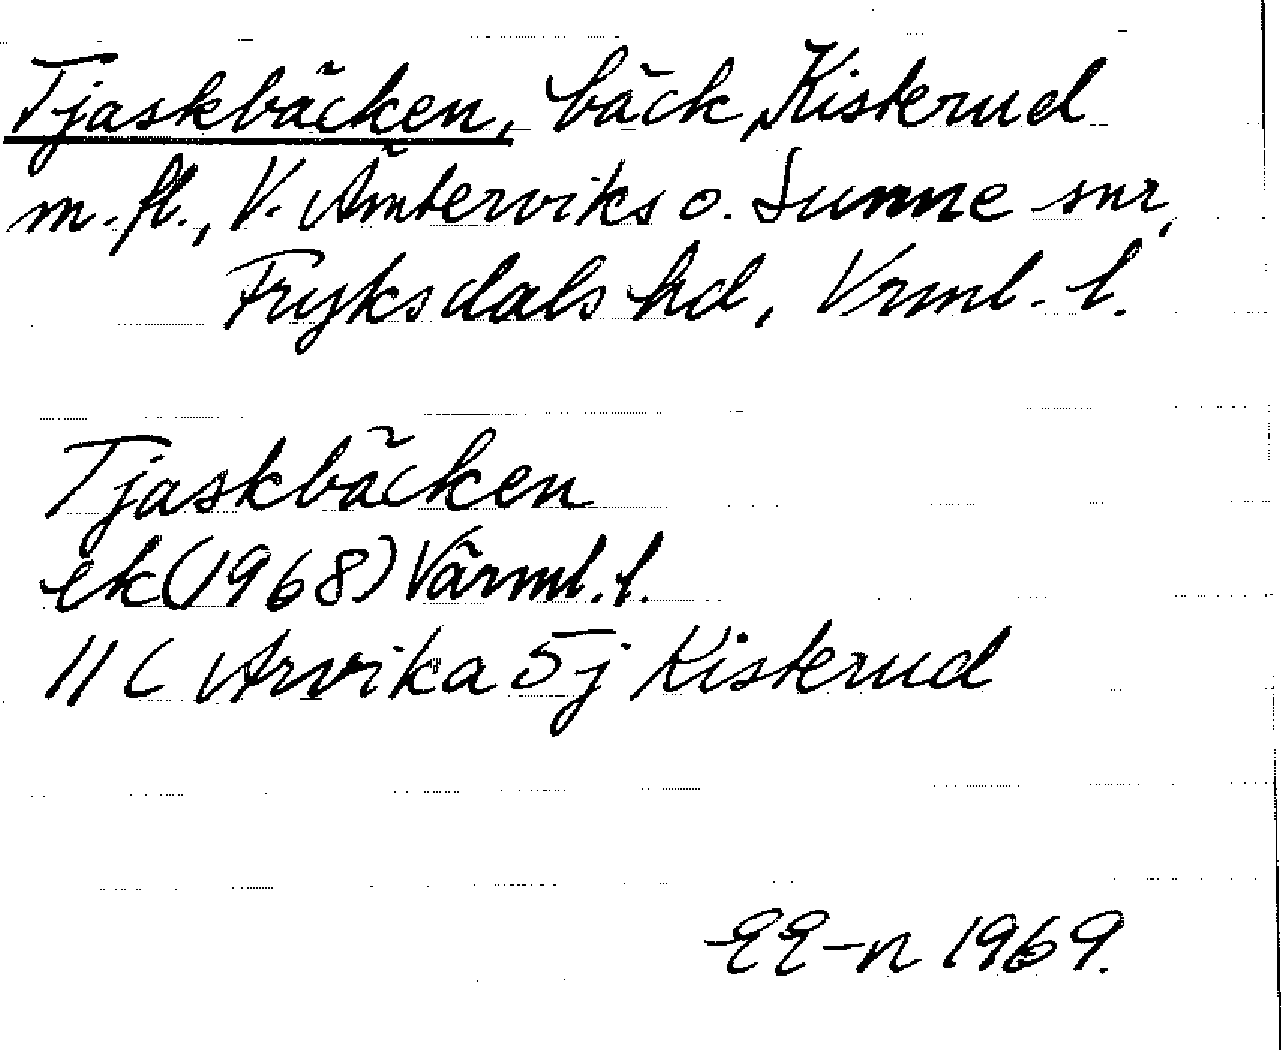 Tjaskbäcken, bäck, Kisterud
m.fl., V. Ämterviks o. Sunne snr,
Fryksdals hd, Vrml. l.
Tjaskbäcken
ek (1968) Värml. l.
11 C Arvika 5 j Kisterud
EE-n 1969.